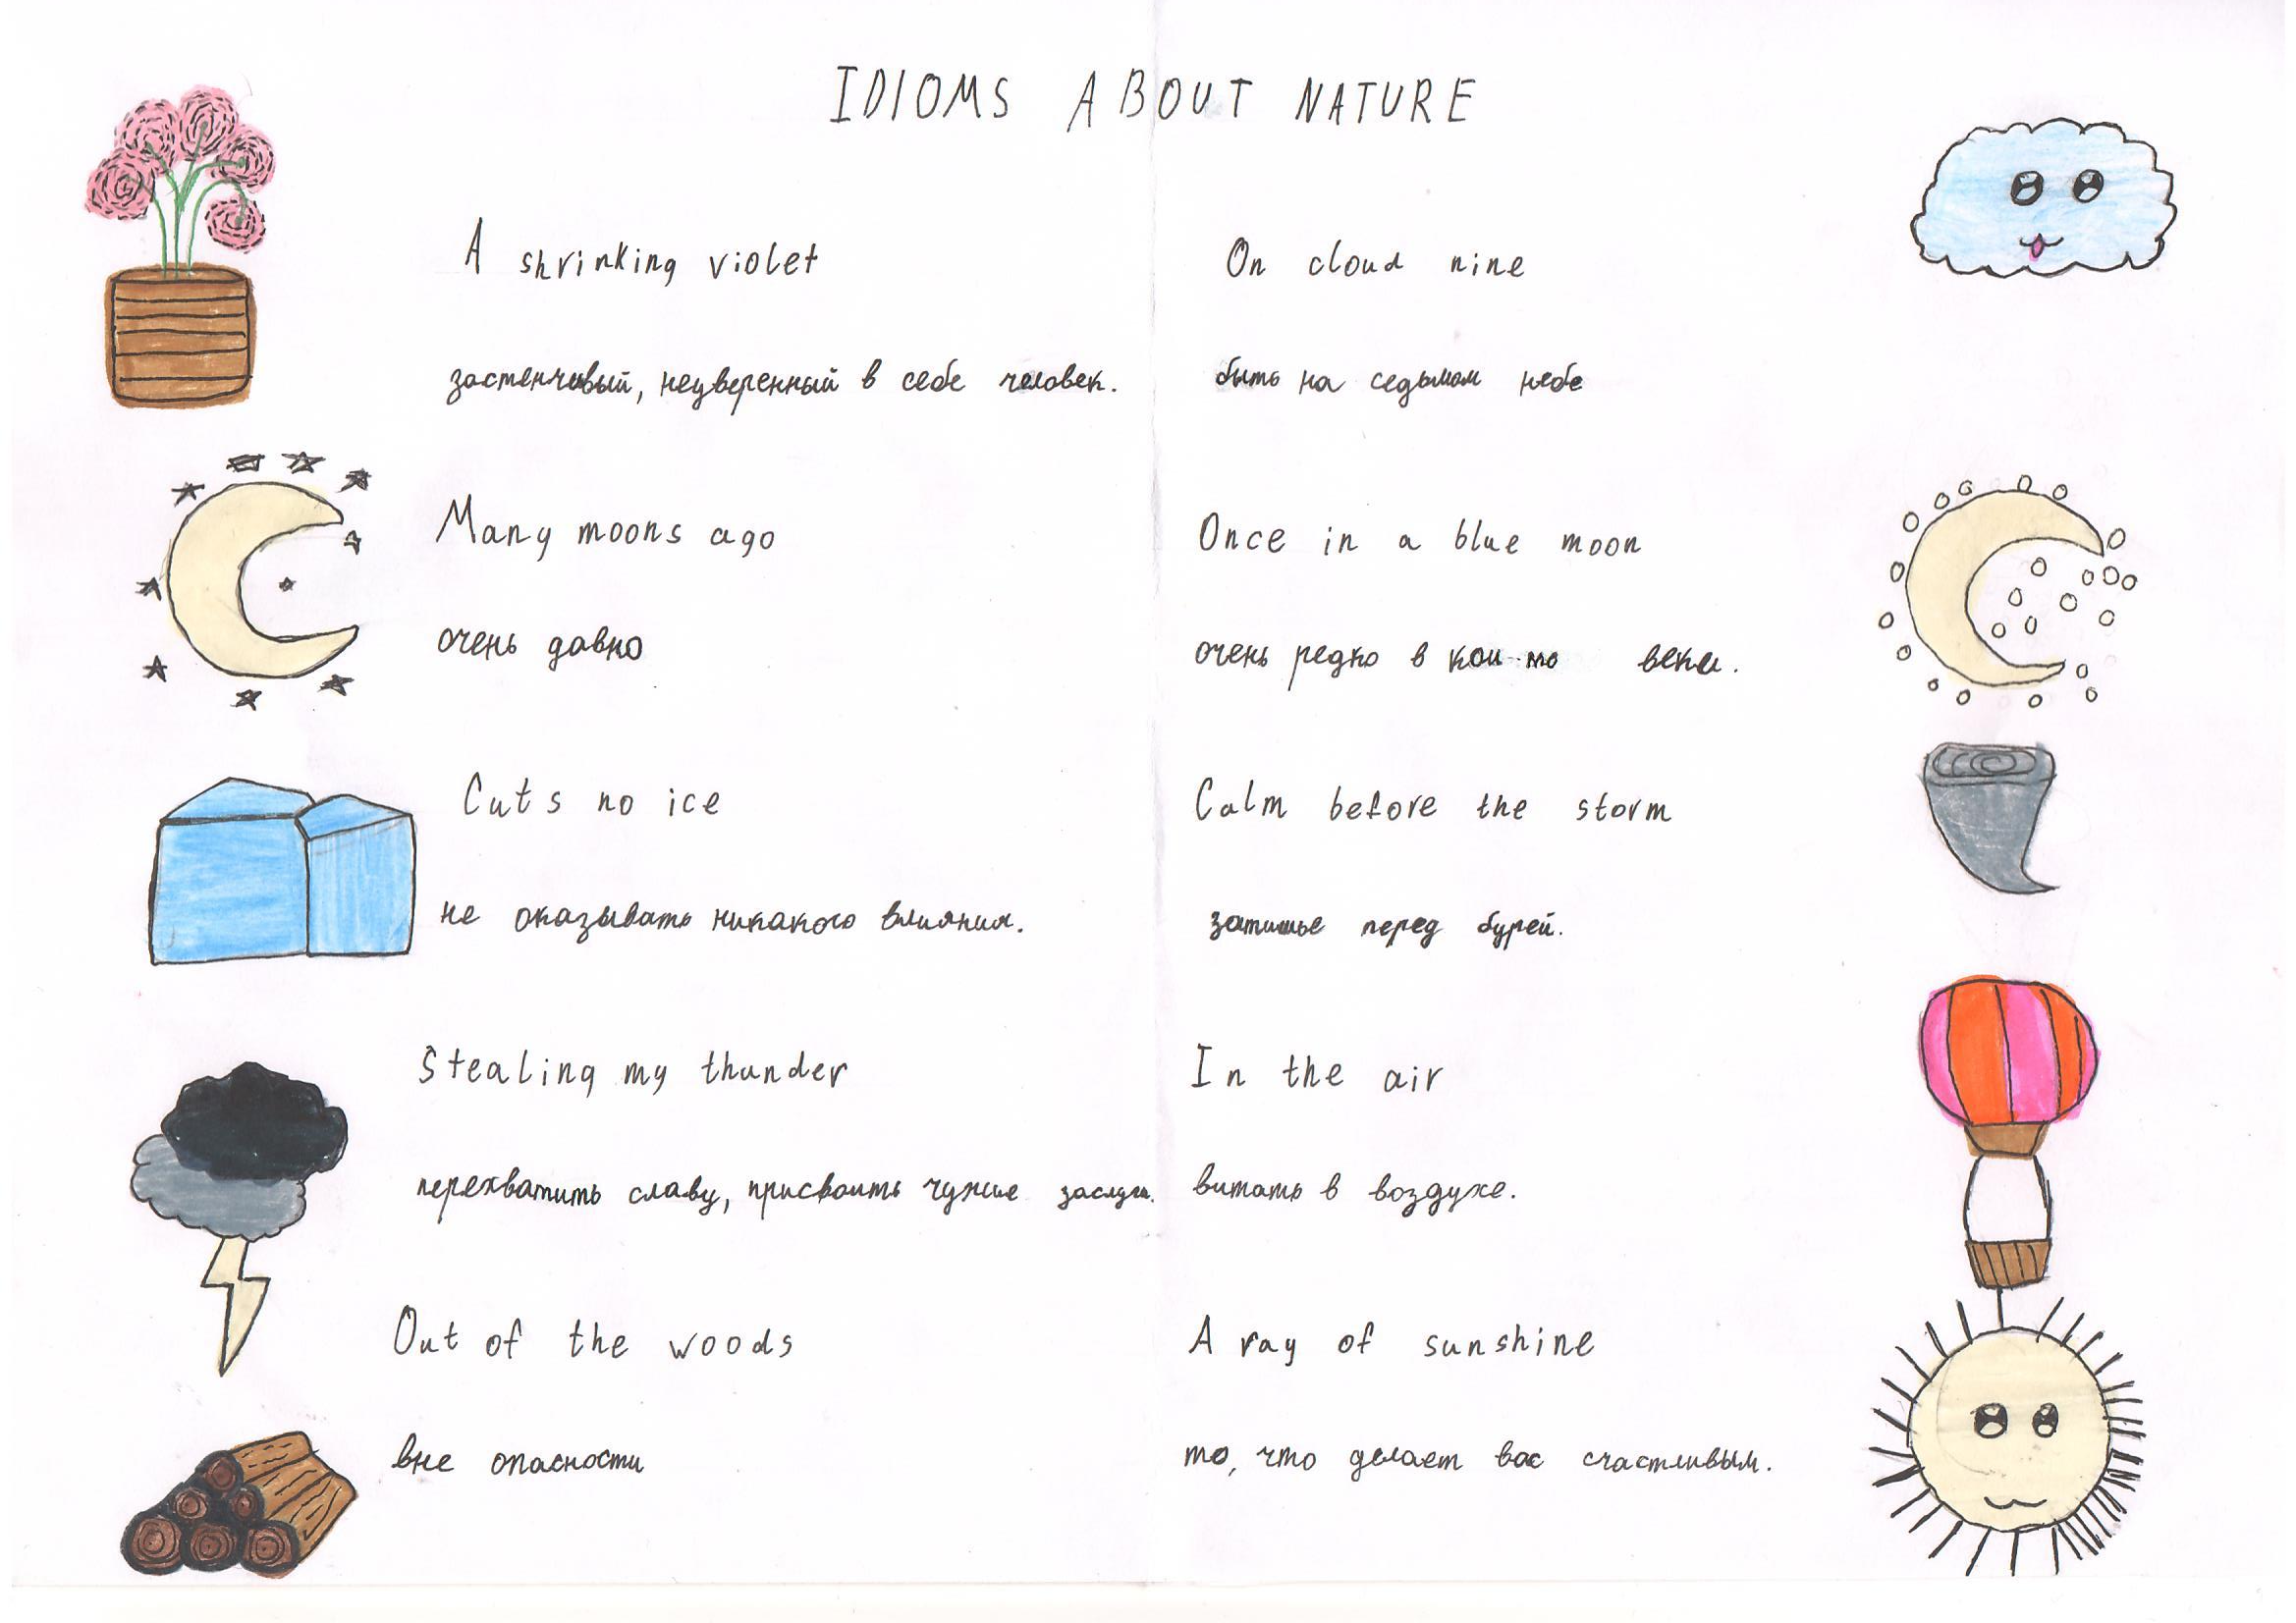 IDIOMS ABOUT NATURE
A shrinking violet
застенчивый, неуверенный в себе человек.
Many moons ago
очень давно
Cuts no ice
не оказывать никакого влияния.
Stealing my thunder
перехватить славу, присвоить чужие заслуги.
Out of the woods
вне опасности
On cloud nine
быть на седьмом небе
Once in a blue moon
очень редко в кои-то веки.
Calm before the storm
затишье перед бурей.
In the air
витать в воздухе.
A ray of sunshine
то, что делает вас счастливым.